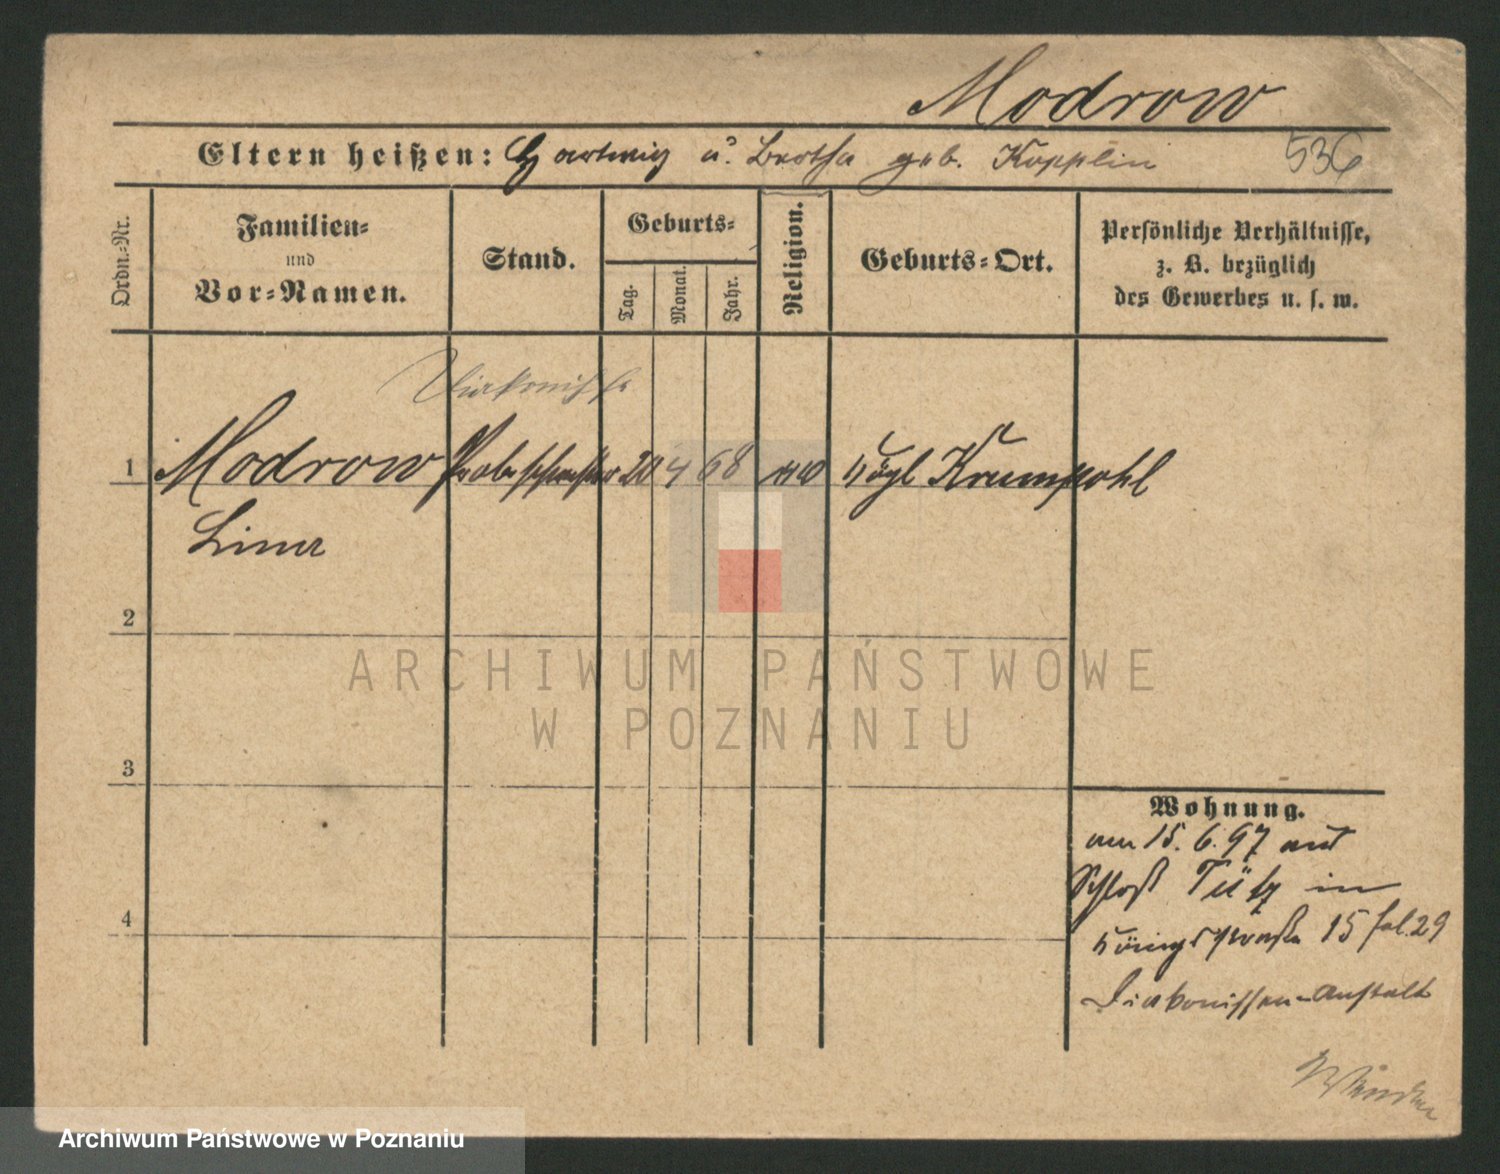 Modrow
Eltern heißen: Hartwig u. Bertha geb. Kopplin 536
Ordn.-Nr.
Familien-
und
Vor-Namen.
Stand.
Geburts-
Tag.
Monat.
Jahr.
Religion.
Geburts-Ort.
Persönliche Verhältnisse,
z. B. bezüglich
des Gewerbes u. s. w.
Diakonisse
1 Modrow Probeschwester 20 4 68 Krumpohl
Lina
2
3
4
ARCHIWUM PAŃSTWOWE
W POZNANIU
Wohnung.
am 15. 6. 97 aus
Schloß Tütz in
Königstraße 15 fol. 29
Diakonissen-Anstalt
Archiwum Państwowe w Poznaniu